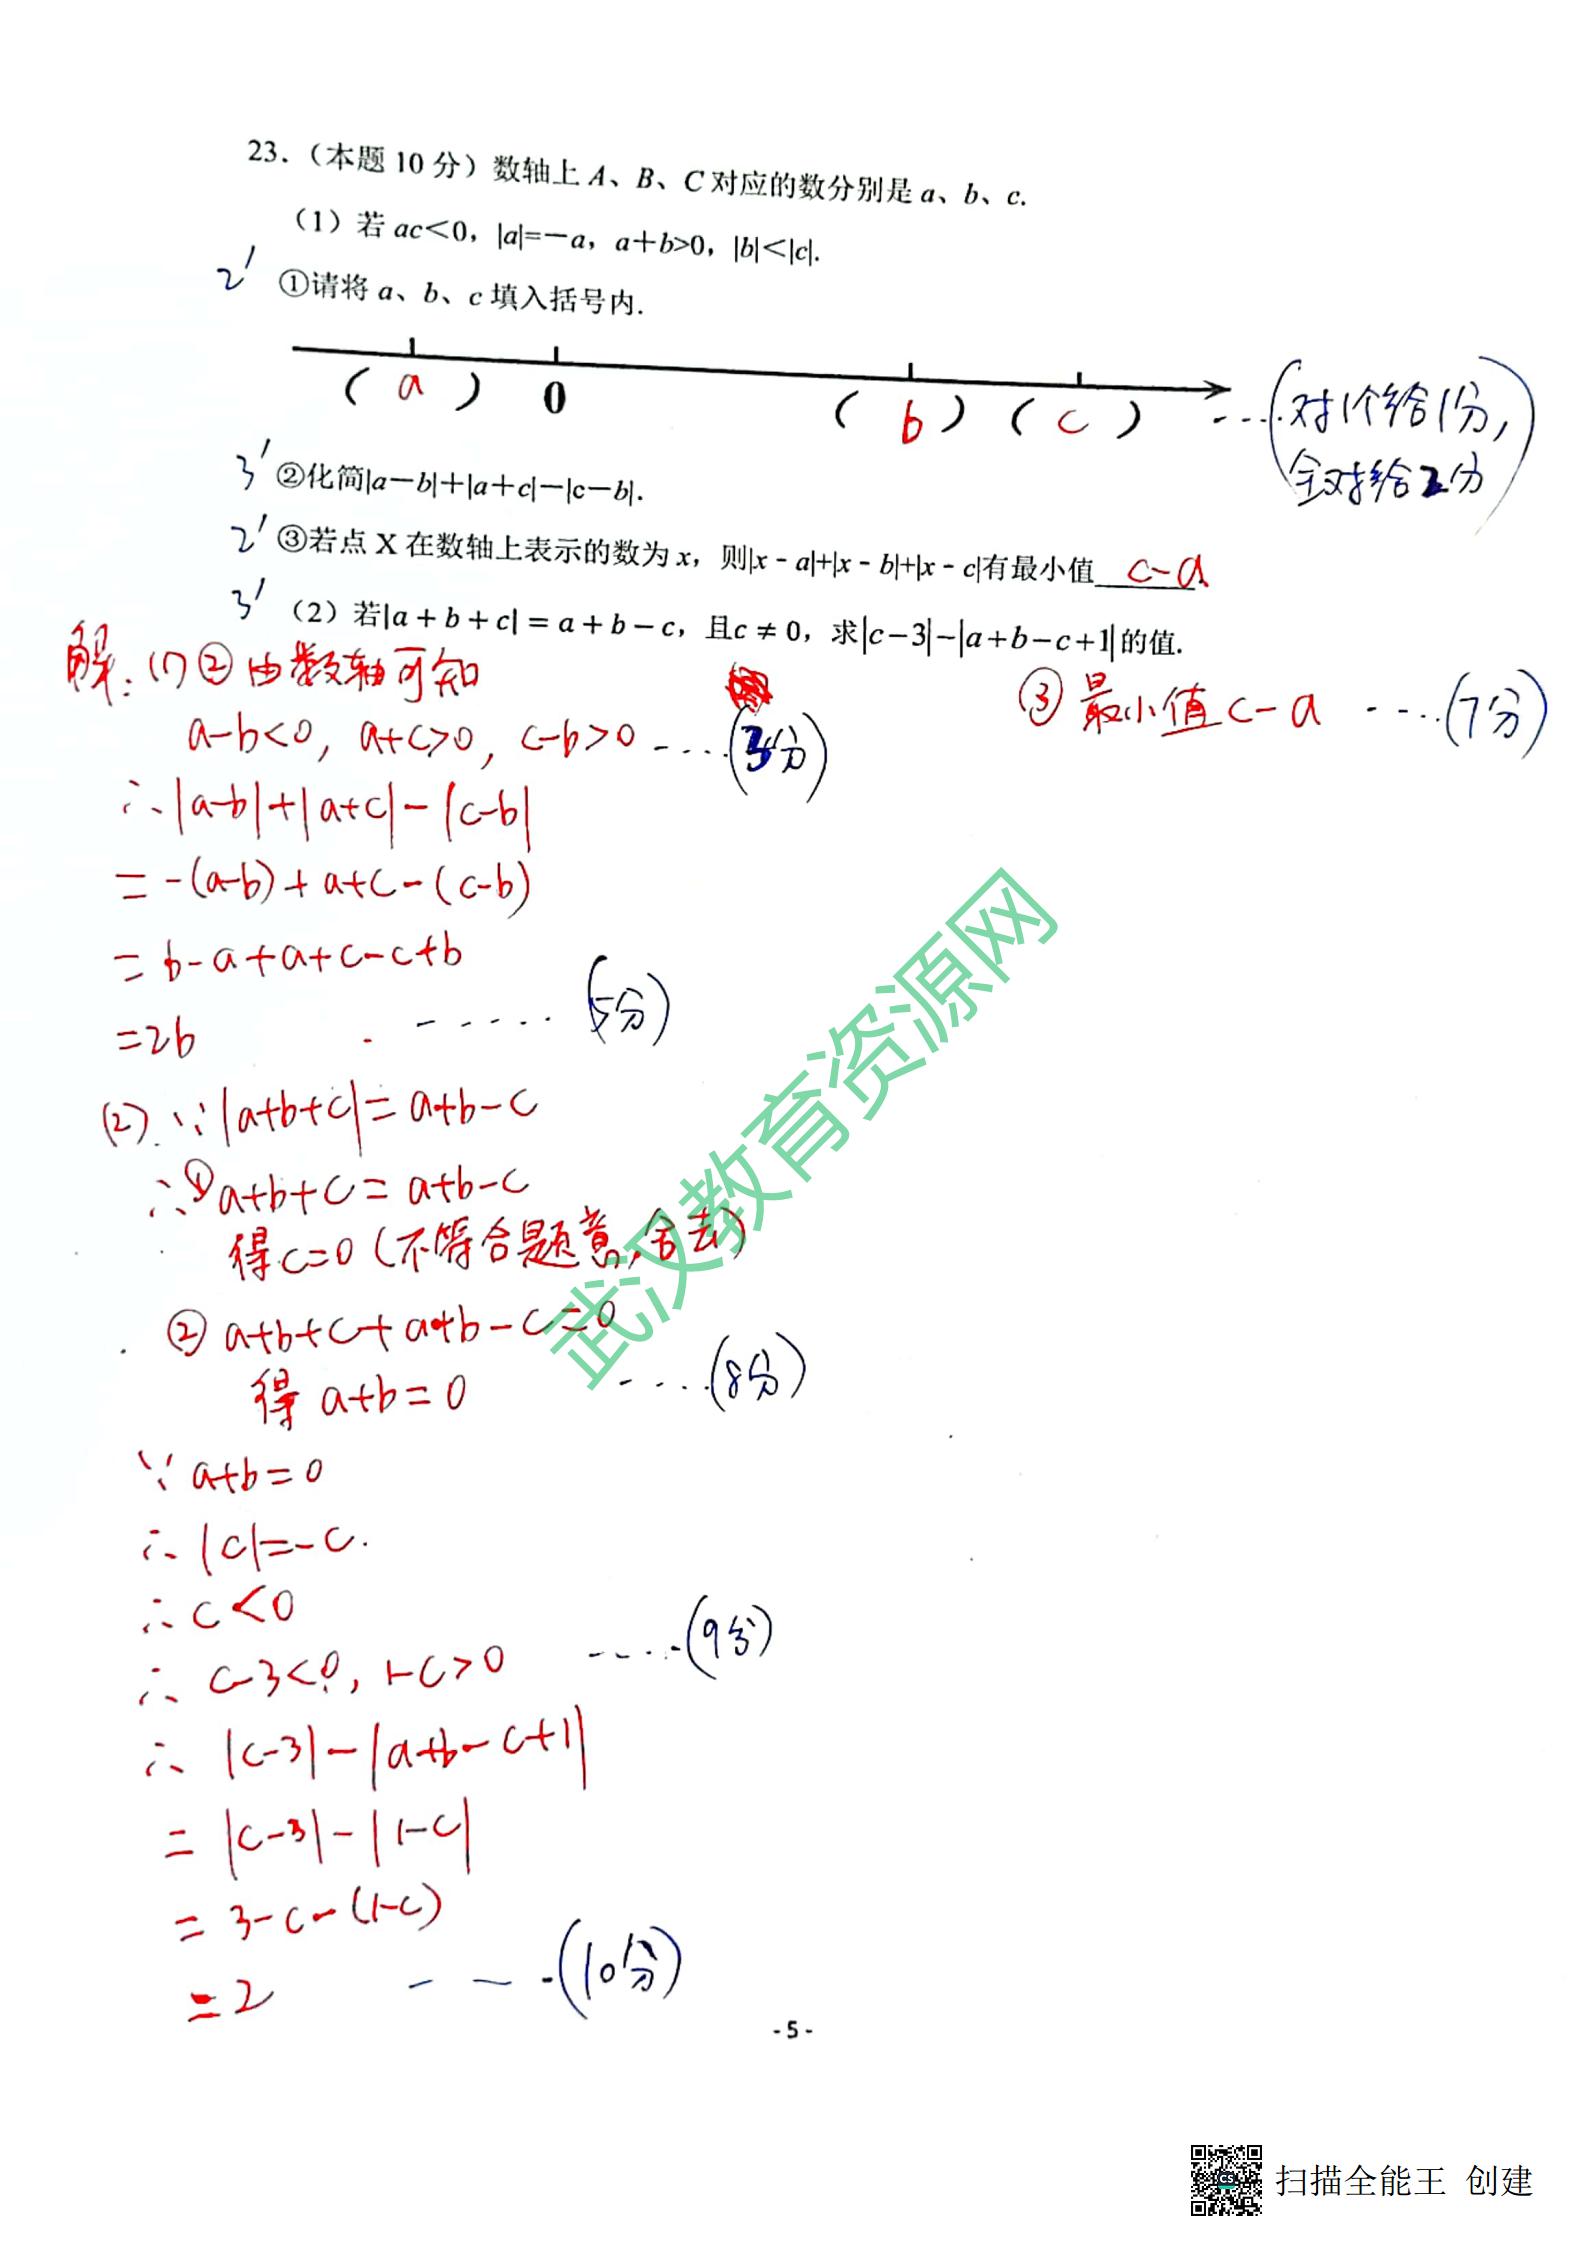 23.（本题 10 分）数轴上 A、B、C 对应的数分别是 a、b、c.
（1）若 ac＜0，|a|=－a，a＋b>0，|b|＜|c|.
2′ ①请将 a、b、c 填入括号内.
( a ) 0 ( b ) ( c ) ----(对1个给1分，
全对给2分)
3′ ②化简|a－b|＋|a＋c|－|c－b|.
2′ ③若点 X 在数轴上表示的数为 x，则|x - a|+|x - b|+|x - c|有最小值 c-a
3′ （2）若|a + b + c| = a + b − c，且c ≠ 0，求|c−3|−|a+b−c+1|的值.
解：(1)②由数轴可知
③最小值 c-a ----(7分)
a-b<0, a+c>0, c-b>0 ----(3分)
∴|a-b|+|a+c|-|c-b|
= -(a-b)+a+c-(c-b)
= b-a+a+c-c+b
=2b ------(5分)
(2). ∵|a+b+c|=a+b-c
∴① a+b+c=a+b-c
得 c=0 (不符合题意,舍去)
② a+b+c+a+b-c=0
得 a+b=0 ----(8分)
∵ a+b=0
∴ |c|=-c.
∴ c<0
∴ c-3<0, 1-c>0 -----(9分)
∴ |c-3|-|a+b-c+1|
= |c-3|-|1-c|
= 3-c-(1-c)
=2 ---(10分)
武汉教育资源网
- 5 -
CS
扫描全能王 创建